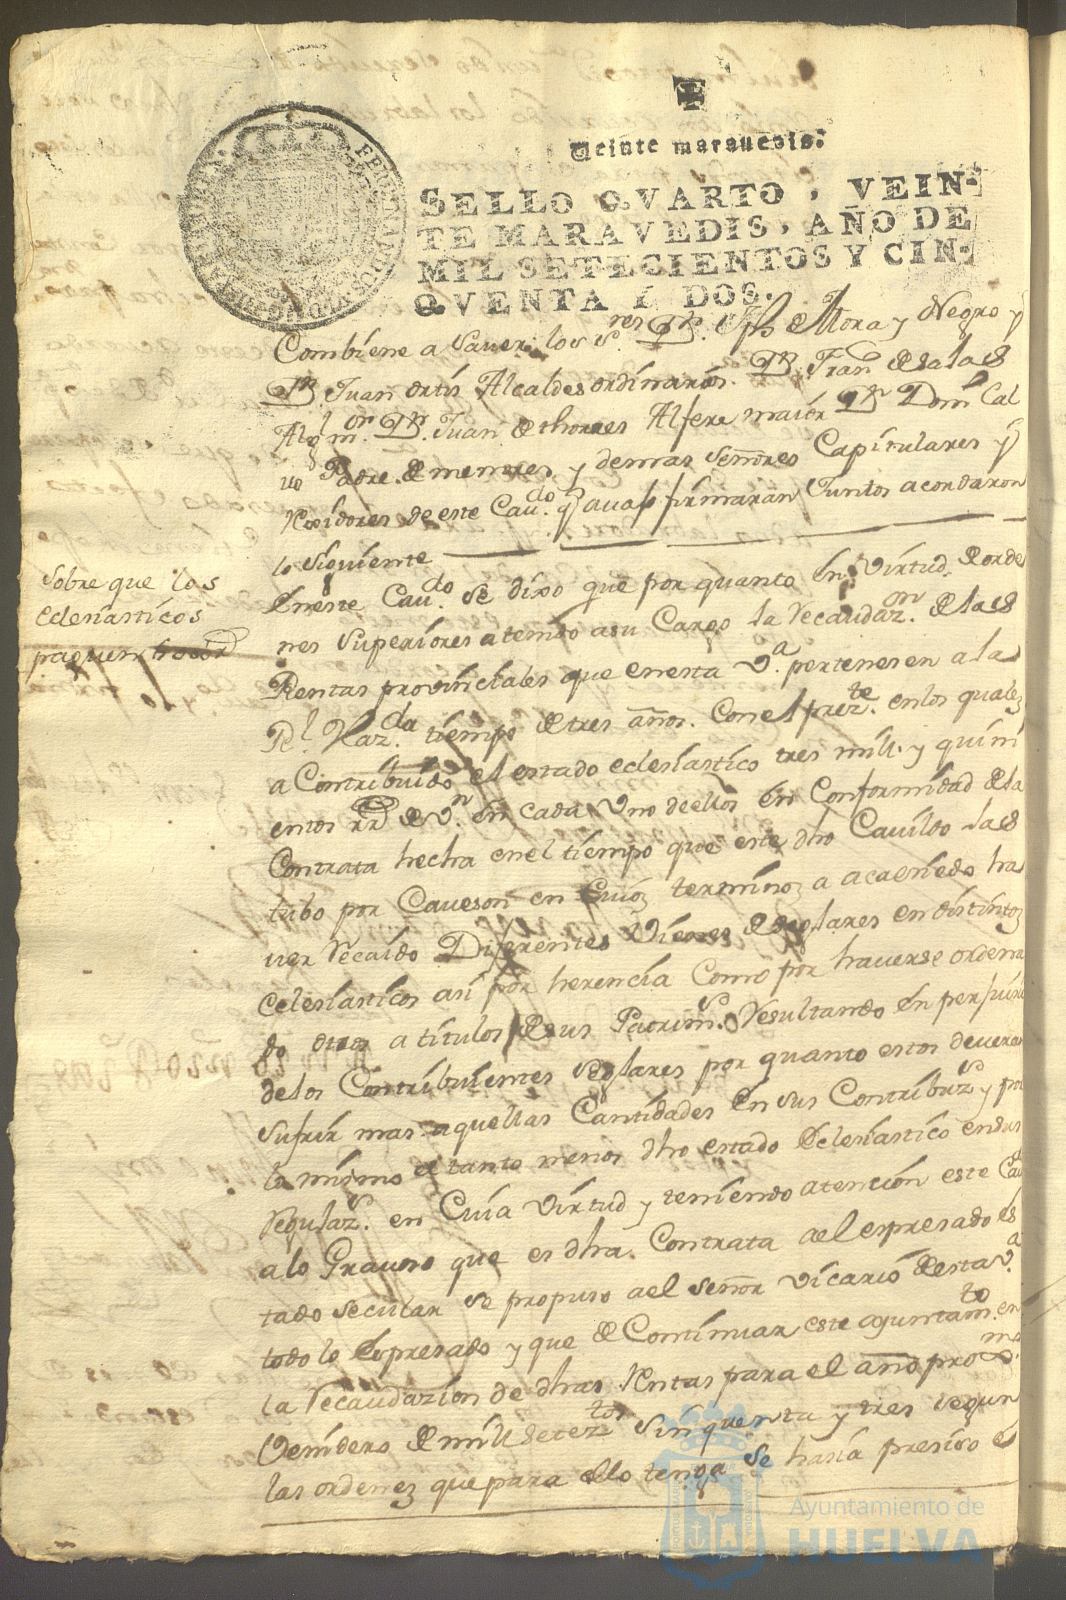 Veinte maravedis.
SELLO QVARTO, VEIN-
TE MARAVEDIS, AÑO DE
MIL SETECIENTOS Y CIN-
QVENTA Y DOS.
Combiene a Saver los S.res Dn. de Mora y Negro y
Dn. Juan ortis Alcaldes ordinarios. Dn. Fran.co de salas
Alg.l m.or Dn. Juan de thorres Alfere maior Dn. Dom.o Cal
uo Padre de menores, y demas señores Capitulares y
Rexidores de este Cau.do q avajo firmaran Juntos acordaron
lo siguiente
Sobre que los
eclesiasticos
paguen
Eneste Cau.do se dixo que por quanto en virtud de orde
nes superiores a tenido a su Cargo la recaudaz.on de las
Rentas provinciales que en esta V.a pertenesen a la
R.l Haz.da tiempo de tres años. Con el prez.te en los quales
a Contribuido el estado eclesiastico tres mill. y quini
entos rr.s de v.n en cada uno de ellos en Conformidad de la
Contrata hecha en el tiempo que este dho Cavildo las
tubo por Caveson en Cuios terminos a acaesido ha
uer recaido Diferentes Vienes de seglares en distintos
Eclesiasticos asi por herencia Como por haverse ordena
do otros a titulos de sus Patrim.s Resultando en perjuisio
de los Contribuientes seglares por quanto estos deveran
sufrir mas aquellas Cantidades en sus Contribuz.s y por
lo mismo tanto menos dho estado Eclesiastico en sus
regulaz.s en Cuia Virtud y teniendo atencion este Cau.do
a lo Gravoso que es dha. Contrata a el espresado es
tado secular se propuso a el señor Vicario de esta V.a
todo lo espresado y que de Continuar este aguntam.to en
la recaudazion de dhas Rentas para el año pro.mo
Venidero de mill setez.tos sinquenta y tres segun
las ordenes que para ello tenga se hasia presiso el
Ayuntamiento de
HUELVA